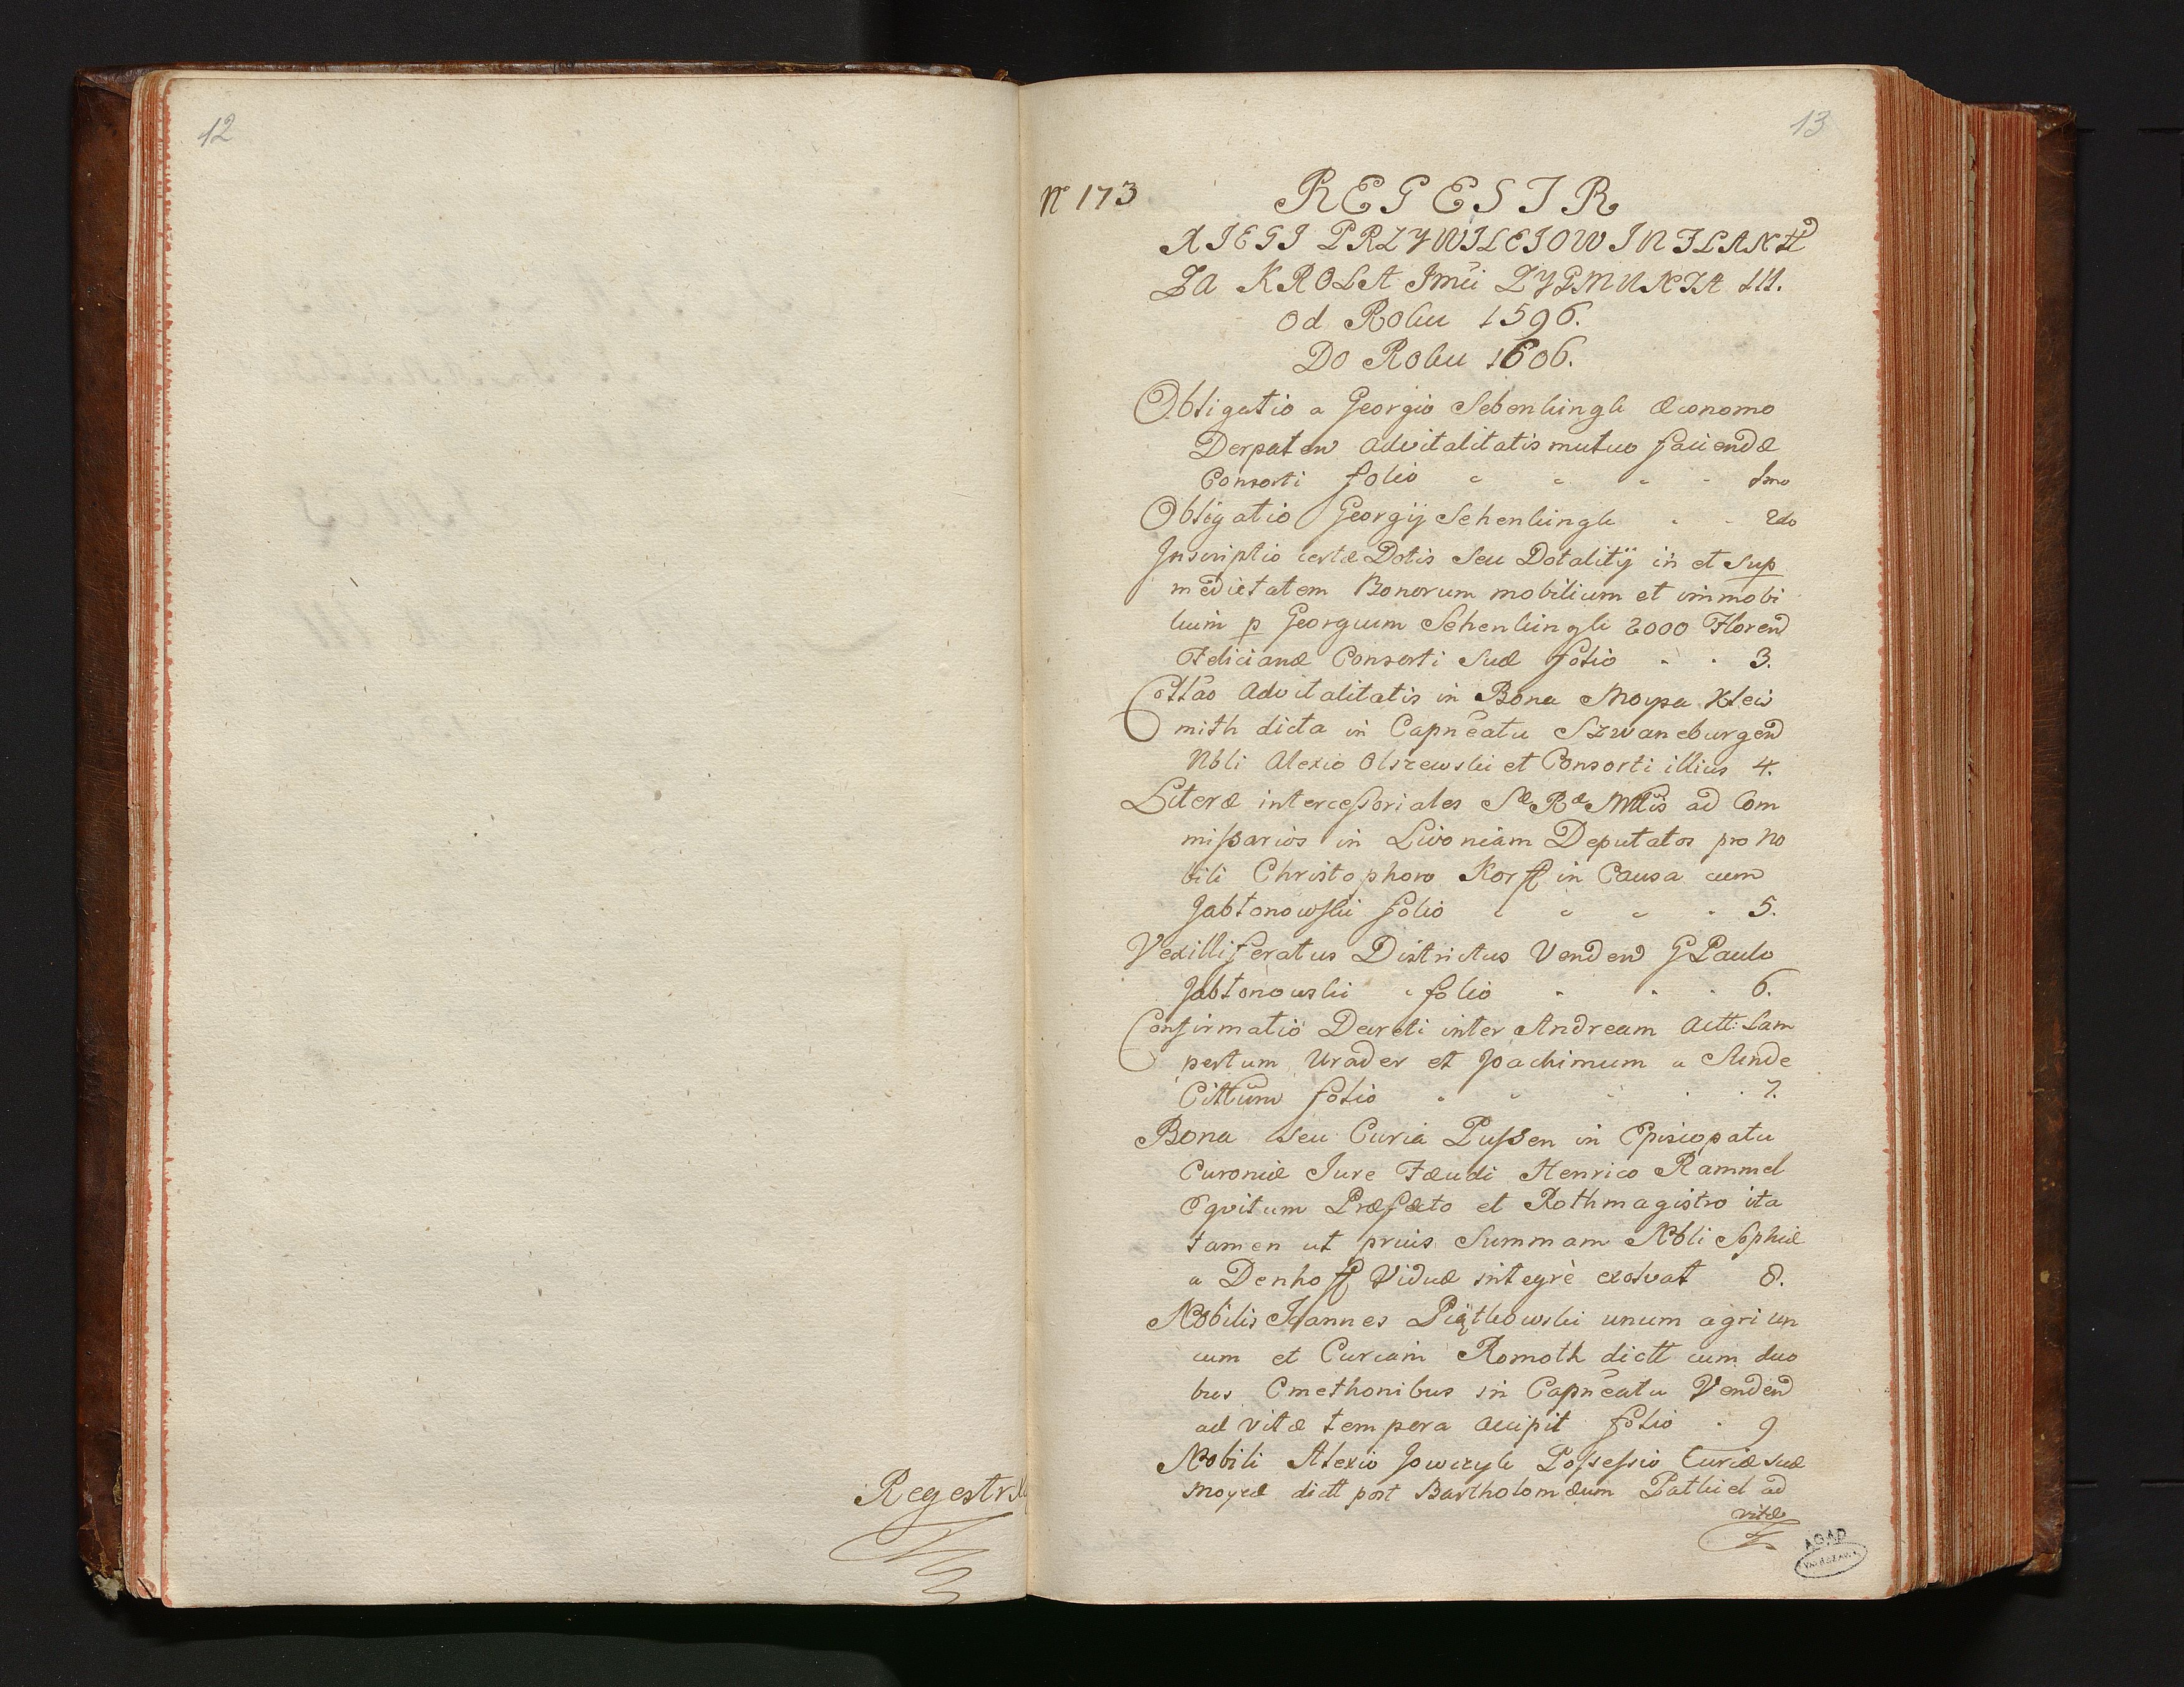 12
Regestr
13
No 173
REGESTR
XIEGI PRZYWILEIOW INFLANTD
ZA KROLA Jmci ZYGMUNTA III.
od Roku 1596.
Do Roku 1606.
Obligatio a Georgio Sebenkingk Œconomo
Derpaten advitalitatis mutuo faciendæ
Consorti folio 1mo
Obligatio Georgij Schenkingk 2do
Inscriptio certæ Dotis seu Dotalitij in et sup
medietatem Bonorum mobilium et immobi
lium p Georgium Schenkingk 2000 Florend
Felicianæ Consorti suæ folio 3.
Collao advitalitatis in Bona Moysa Kleis
mith dicta in Capneatu Szwaneburgend
Nbli Alexio Olszewski et Consorti illius 4.
Literæ intercessoriales Sæ Ræ Mttis ad Com
missarios in Livoniam Deputatos pro No
bili Christophoro Korff in Causa cum
Jabłonowski folio 5.
Vexilliferatus Districtus Vendend G Paulo
Jabłonowski folio 6.
Confirmatio Decreti inter Andream Actt: Lam
pertum Urader et Joachimum a Sunde
Cittum folio 7.
Bona seu Curia Pussen in Episcopatu
Curoniæ Jure Fæudi Henrico Rammel
Eqvitum Præfecto et Rothmagistro ita
tamen ut prius Summam Nbli Sophiæ
a Denhoff Viduæ integrè exolvat 8.
Nobilis Joannes Piątkowski unum agri un
cum et Curiam Romoth dictt cum duo
bus Cmethonibus in Capneatu Vendend
ad vitæ tempora accipit folio 9
Nobili Alexio Jowczyk Possessio Curiæ suæ
Moyzæ dictt post Bartholomæum Patkiel ad
vitæ
AGAD
WARSZAWA